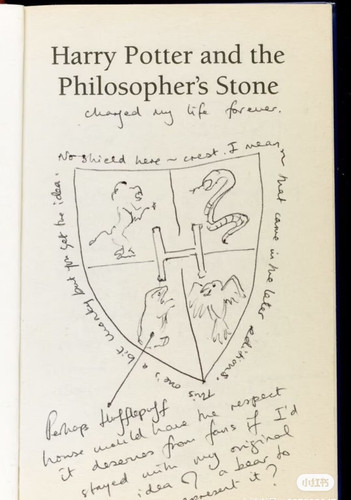 Harry Potter and the
Philosopher's Stone
changed my life forever.
No shield here ~ crest. I mean
that came in the later editions.
This one is a bit wonky but you get the idea.
H
Perhaps Hufflepuff
house would have the respect
it deserves from fans if I'd
stayed with my original
idea of a bear to
represent it?
小红书